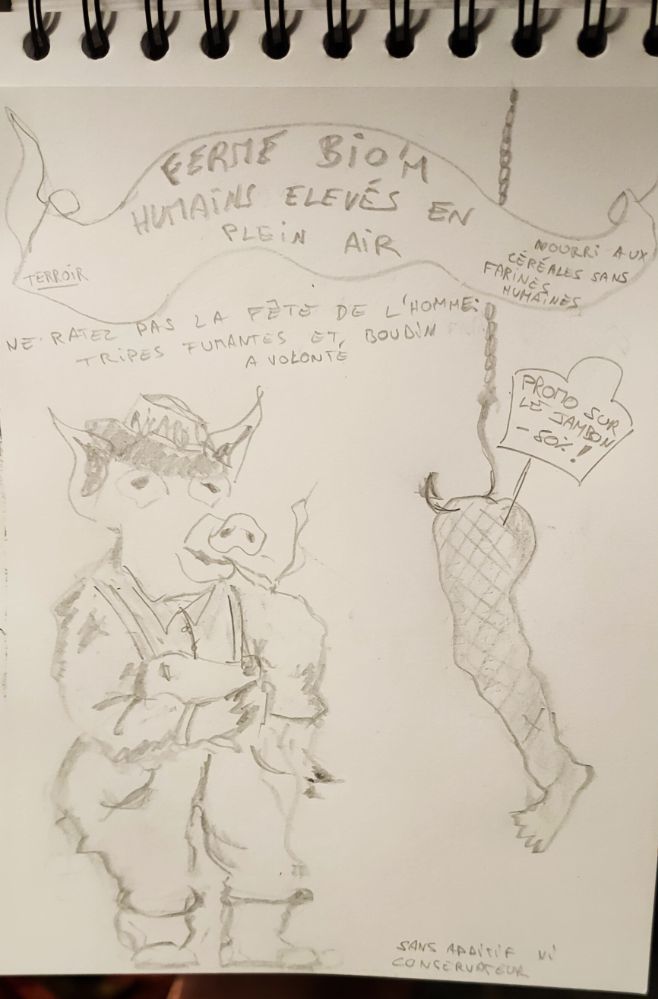 FERME BIO'M
HUMAINS ELEVÉS EN
PLEIN AIR
TERROIR
NOURRI AUX
CÉRÉALES SANS
FARINES
HUMAINES
NE RATEZ PAS LA FÊTE DE L'HOMME:
TRIPES FUMANTES ET BOUDIN
A VOLONTÉ
PROMO SUR
LE JAMBON
-50% !
SANS ADDITIF NI
CONSERVATEUR